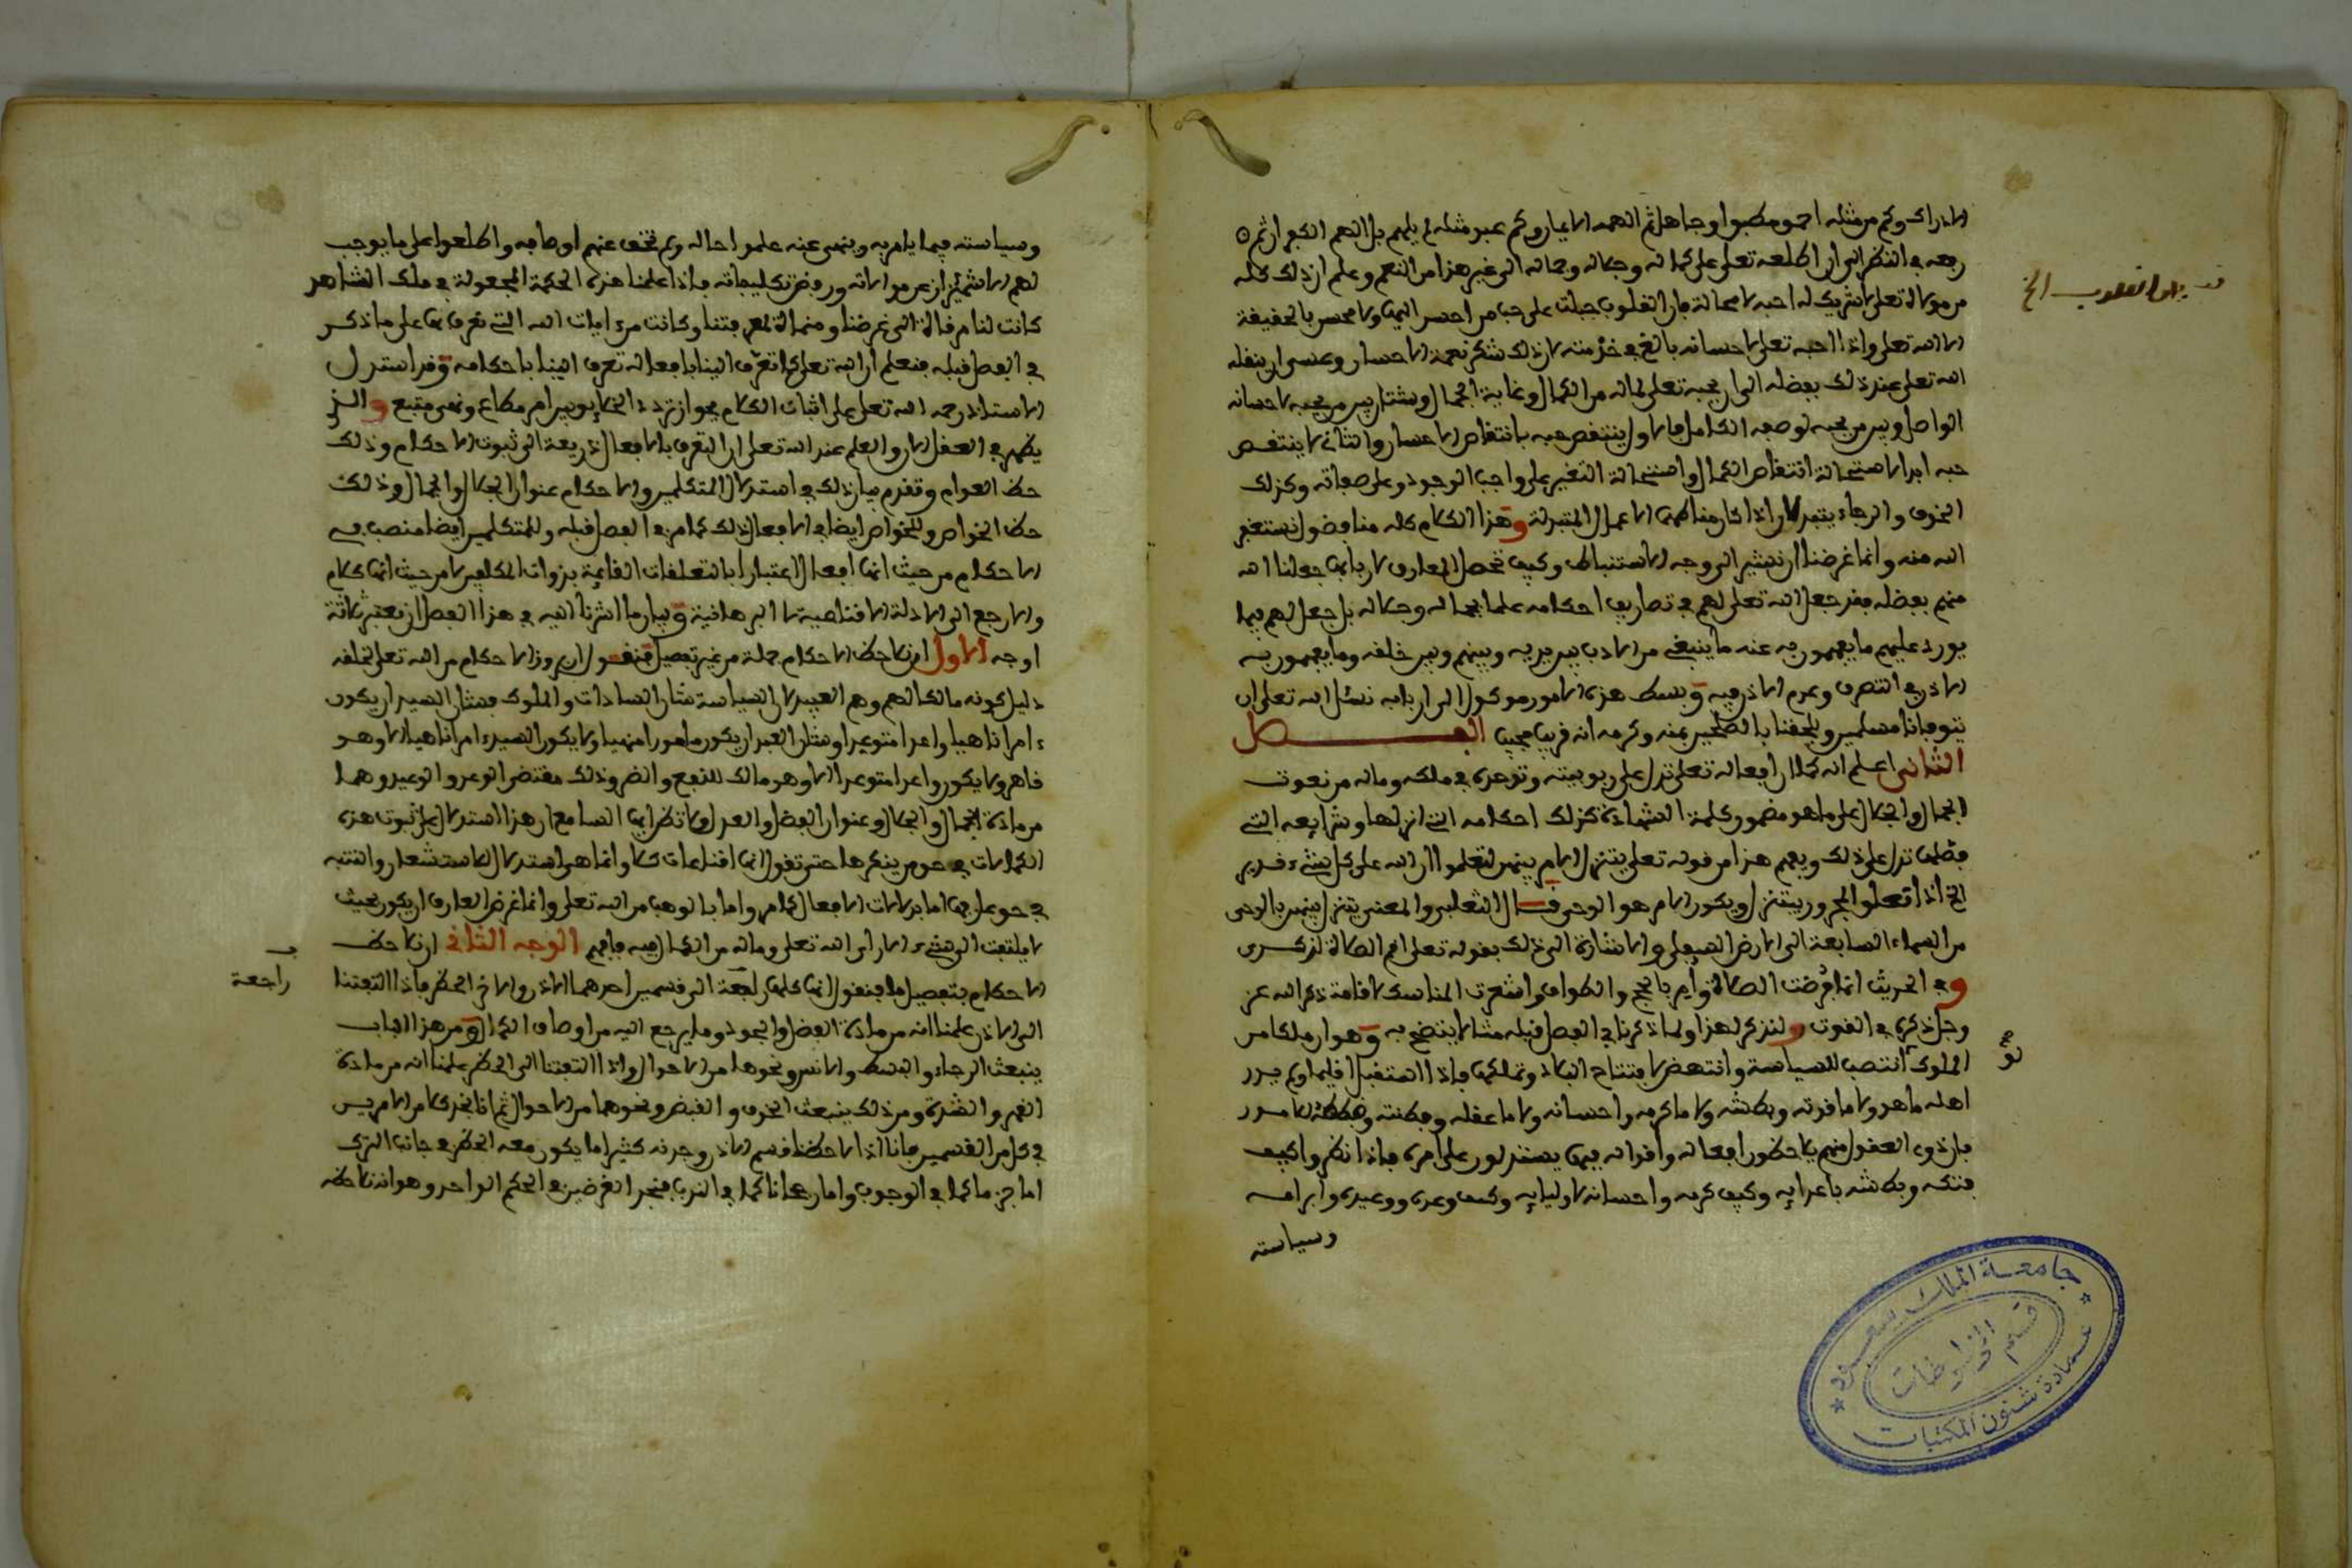 الادراك وكم من مثله احمق مطبوا وجاهل ثم الهمه الايمان وكم عبد مثله لم يلهم بل الهم الكفر ان ثم
رفعه في النظر الى ان اطلعه تعلى على كماله وجلاله وجماله الى غير هذا من النعم وعلم ان ذلك كله
من مولاه تعلى لا شريك له احبه لا محالة فان القلوب جبلت على حب من احسن اليها ولا محسن بالحقيقة
الا الله تعلى واذا احبه تعلى لاحسانه بالغ في خدمته لان ذلك شكر نعمة الاحسان وعسى ان ينقله
الله تعلى عند ذلك بفضله الى ان يحبه تعلى لماله من الكمال وغاية الجمال وشتان بين من يحبه لاحسانه
الواصل وبين من يحبه لوصفه الكامل فالاول ينتقص حبه بانتقاص الاحسان والثاني لا ينتقص
حبه ابدا لاستحالة انتقاص الكمال واستحالة التغير على واجب الوجود وعلى صفاته وكذلك
الخوف والرجاء يتبدلان اذا كان مناطهما الاعمال المتبدلة وهذا الكلام كله منا فضول نستغفر
الله منه وانما غرضنا ان نشير الى وجه الاستنباط وكيف تحصل المعارف لاربابها جعلنا الله
منهم بفضله فقد جعل الله تعلى لهم في تصاريف احكامه علما بجماله وجلاله بل جعل لهم فيما
يورد عليهم ما يفهمون به عنه ما ينبغي من الادب بين يديه وبينهم وبين خلقه وما يفهمون به
الاذن في التصرف وعدم الاذن فيه وبسط هذه الامور موكول الى اربابه نسئل الله تعلى ان
يتوفانا مسلمين ويلحقنا بالصالحين بمنه وكرمه انه قريب مجيب الفصل
الثاني اعلم انه كما ان افعاله تعلى تدل على ربوبيته وتوحده في ملكه وماله من نعوت
الجمال والجلال على ما هو مضمون كلمة الشهادة كذلك احكامه التي انزلها وشرايعه التي
فصلها تدل على ذلك ويفهم هذا من قوله تعلى يتنزل الامر بينهن لتعلموا ان الله على كل شيء قدير
الخ اذا تعلق المجرور بيتنزل ويكون الامر هو الوحي قال الثعلبي والمعنى يتنزل بينهن بالوحي
من السماء السابعة الى الارض السفلى والاشارة الى ذلك بقوله تعلى اقم الصلاة لذكري
وفي الحديث انما فرضت الصلاة وامر بالحج والطواف واشعرت المناسك لاقامة ذكر الله عز
وجل ذكره في القوت ولنذكر لهذا ولما ذكرنا في الفصل قبله مثالا يتضح به وهو ان ملكا من
الملوك انتصب للسياسة وانتهض لافتتاح البلاد وتملكها فاذا استقبل اقليما ولم يدر
اهله ما هو ولا ما قوته وبطشه ولا ما كرمه واحسانه ولا ما عقله وفطنته وخططه الامور
فان ذوي العقول منهم يلاحظون افعاله واقواله فيها يستدلون على امره فاذا نظروا كيف
فتكه وبطشه باعدايه وكيف كرمه واحسانه لاوليايه وكيف وعده ووعيده وابرامه
وسياسته
قف فان القلوب الخ
نو
جامعة الملك سعود
قسم المخطوطات
عمادة شئون المكتبات
وسياسته فيما يامر به وينهى عنه علموا حاله ولم تخف عنهم اوصافه واطلعوا على ما يوجب
لهم الاشمئزاز عن موالاته ورفض تكليفاته فاذا علمنا هذه الحكمة المجعولة في ملك الشاهد
كانت لنا مرقاة الى غرضنا ومنهاة لمعرفتنا وكانت من ايات الله التي تعرف بها على ما ذكر
في الفصل قبله فنعلم ان الله تعلى كما تعرف الينا بافعاله تعرف الينا باحكامه وقد استدل
الاستاذ رحمه الله تعلى على اثبات الكلام بجواز تردد الخلايق بين امر مطاع ونهي متبع والذي
يظهر في العقل الان والعلم عند الله تعلى ان التعرف بالافعال ذريعة الى ثبوت الاحكام وذلك
حظ العوام وتقدم بيان ذلك في استدلال المتكلمين والاحكام عنوان الجلال والجمال وذلك
حظ الخواص وللخواص ايضا في الافعال ذلك كما مر في الفصل قبله وللمتكلمين ايضا منصب في
الاحكام من حيث انها افعال اعتبارا بالتعلقات القايمة بذوات المكلفين لا من حيث انها كلام
والا رجع الى الادلة الاقناعية لا البرهانية وبيان ما اشرنا اليه في هذا الفصل ان نعتبر ثلاثة
اوجه الاول ان نلاحظ الاحكام جملة من غير تفصيل فنقول ان بروز الاحكام من الله تعلى لخلقه
دليل كونه مالكا لهم وهم العبيد لان السياسة شان السادات والملوك فشان السيد ان يكون
ءامرا ناهيا واعدا متوعدا وشان العبد ان يكون مامورا منهيا ولا يكون السيد ءامرا ناهيا الا وهو
قاهر ولا يكون واعدا متوعدا الا وهو مالك للنفع والضر وذلك مقتضى الوعد والوعيد وهما
من مادة الجمال والجلال وعنوان الفضل والعدل ولا تظن ايها السامع ان هذا استدلال على ثبوت هذه
الكمالات في حق من ينكرها حتى تقول انها اقناعات كلا وانما هي استدلال لاستشعار والتنبه
في حق عارفها اما بدلالات الافعال كما مر واما بالوهب من الله تعلى وانما غرض العارف ان يكون بحيث
لا يلتفت الى شيء الا راى الله تعلى وماله من الكمال فيه فافهم الوجه الثاني ان نلاحظ
الاحكام بتفصيل ما فنقول انها كلها راجعة الى قسمين احدهما الاذن والاخر الحظر فاذا التفتنا
الى الاذن علمنا انه من مادة الفضل والجود وما يرجع اليه من اوصاف الكمال ومن هذا الباب
ينبعث الرجاء والبسط والانس ونحوها من الاحوال واذا التفتنا الى الحظر علمنا انه من مادة
القهر والشدة ومن ذلك ينبعث الخوف والقبض ونحوهما من الاحوال ثم انا نجد كلا من الامرين
في كل من القسمين فانا اذا لاحظنا قسم الاذن وجدنه كثيرا ما يكون معه الحظر في جانب الترك
اما جزما كما في الوجوب واما رجحانا كما في الندب فنجد الغرضين في الحكم الواحد وهو انه نلاحظه
راجعة